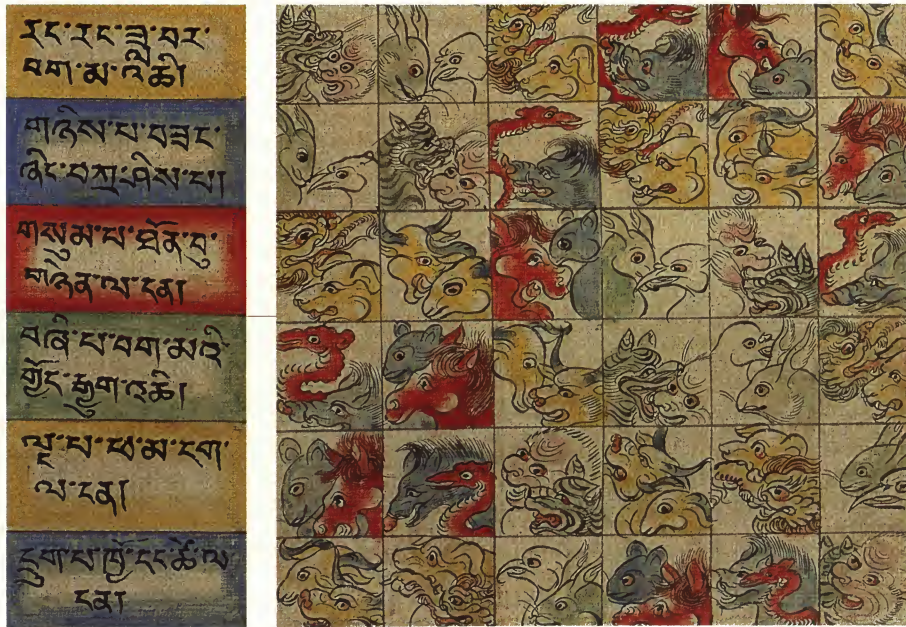 རང་རང་ཟླ་བར་
བག་མ་འཆི།
གཉིས་པ་བཟང་
ཞིང་བཀྲ་ཤིས་པ།
གསུམ་པ་ཐོན་བུ་
གཉན་ལ་ངན།
བཞི་པ་བག་མའི་
ལྔ་པ་ཕ་མ་དག་
ལ་ངན།
དྲུག་པ་ཁྱོ་དང་ཚེ་ལ
ངན།